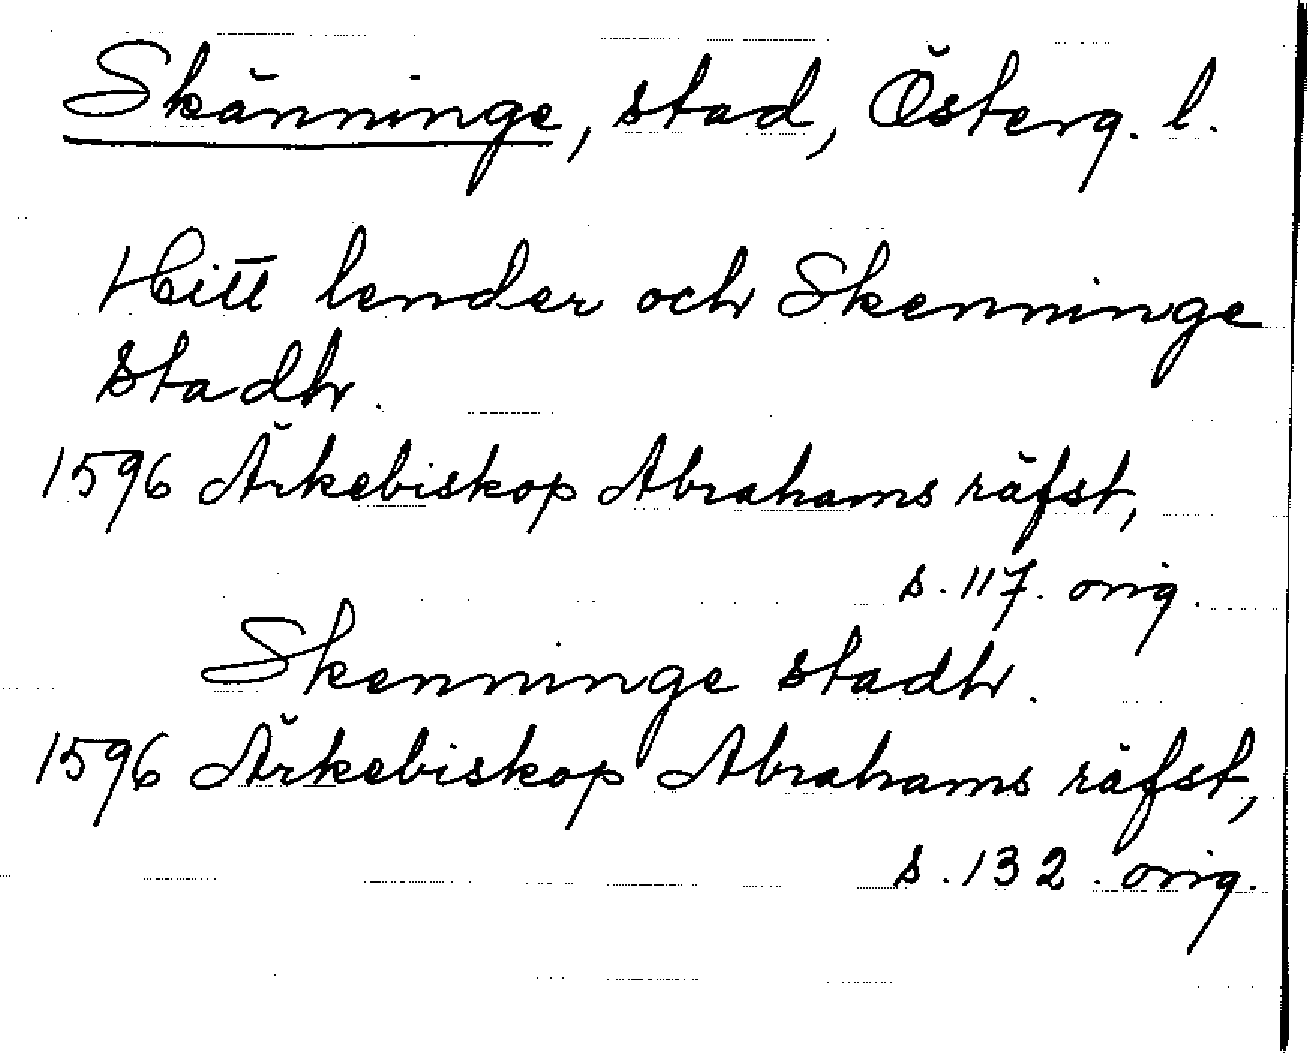 Skänninge, stad, Österg. l.
Hitt lender och Skenninge
stadh.
1596 Ärkebiskop Abrahams räfst,
s. 117. orig.
Skenninge stadh.
1596 Ärkebiskop Abrahams räfst,
s. 132. orig.